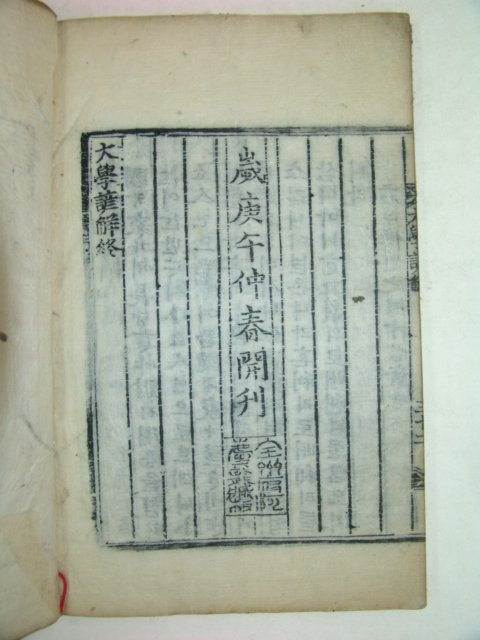 大學諺解
歲庚午仲春開刊
全州府河
慶龍藏板
大學諺解終